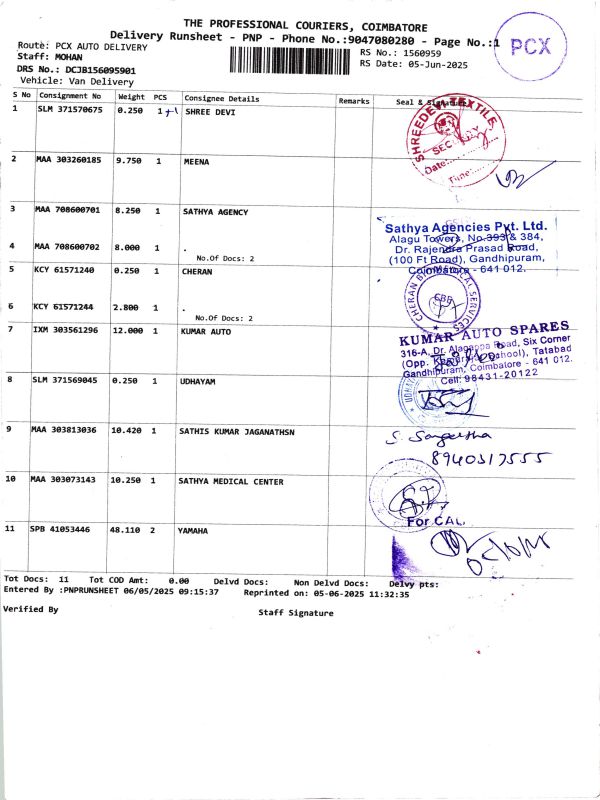 THE PROFESSIONAL COURIERS, COIMBATORE
Delivery Runsheet - PNP - Phone No.:9047080280 - Page No.:1
PCX
Route: PCX AUTO DELIVERY
RS No.: 1560959
Staff: MOHAN
RS Date: 05-Jun-2025
DRS No.: DCJB156095901
Vehicle: Van Delivery
S No Consignment No Weight PCS Consignee Details Remarks Seal & Signature
1 SLM 371570675 0.250 1 +1 SHREE DEVI
SHREEDEVI TEXTILE
SECURITY
Date:
Time:
2 MAA 303260185 9.750 1 MEENA
3 MAA 708600701 8.250 1 SATHYA AGENCY
Sathya Agencies Pvt. Ltd.
Alagu Towers, No.393 & 384,
Dr. Rajendra Prasad Road,
(100 Ft Road), Gandhipuram,
Coimbatore - 641 012.
4 MAA 708600702 8.000 1 .
No.Of Docs: 2
5 KCY 61571240 0.250 1 CHERAN
6 KCY 61571244 2.800 1 .
No.Of Docs: 2
7 IXM 303561296 12.000 1 KUMAR AUTO
KUMAR AUTO SPARES
316-A, Dr. Alagappa Road, Six Corner
School), Tatabad
Gandhipuram, Coimbatore - 641 012.
Cell: 98431-20122
8 SLM 371569045 0.250 1 UDHAYAM
9 MAA 303813036 10.420 1 SATHIS KUMAR JAGANATHSN
S. Sangeetha
8940517555
10 MAA 303073143 10.250 1 SATHYA MEDICAL CENTER
For CAL
11 SPB 41053446 48.110 2 YAMAHA
Tot Docs: 11 Tot COD Amt: 0.00 Delvd Docs: Non Delvd Docs: Delvy pts:
Entered By :PNPRUNSHEET 06/05/2025 09:15:37 Reprinted on: 05-06-2025 11:32:35
Verified By
Staff Signature